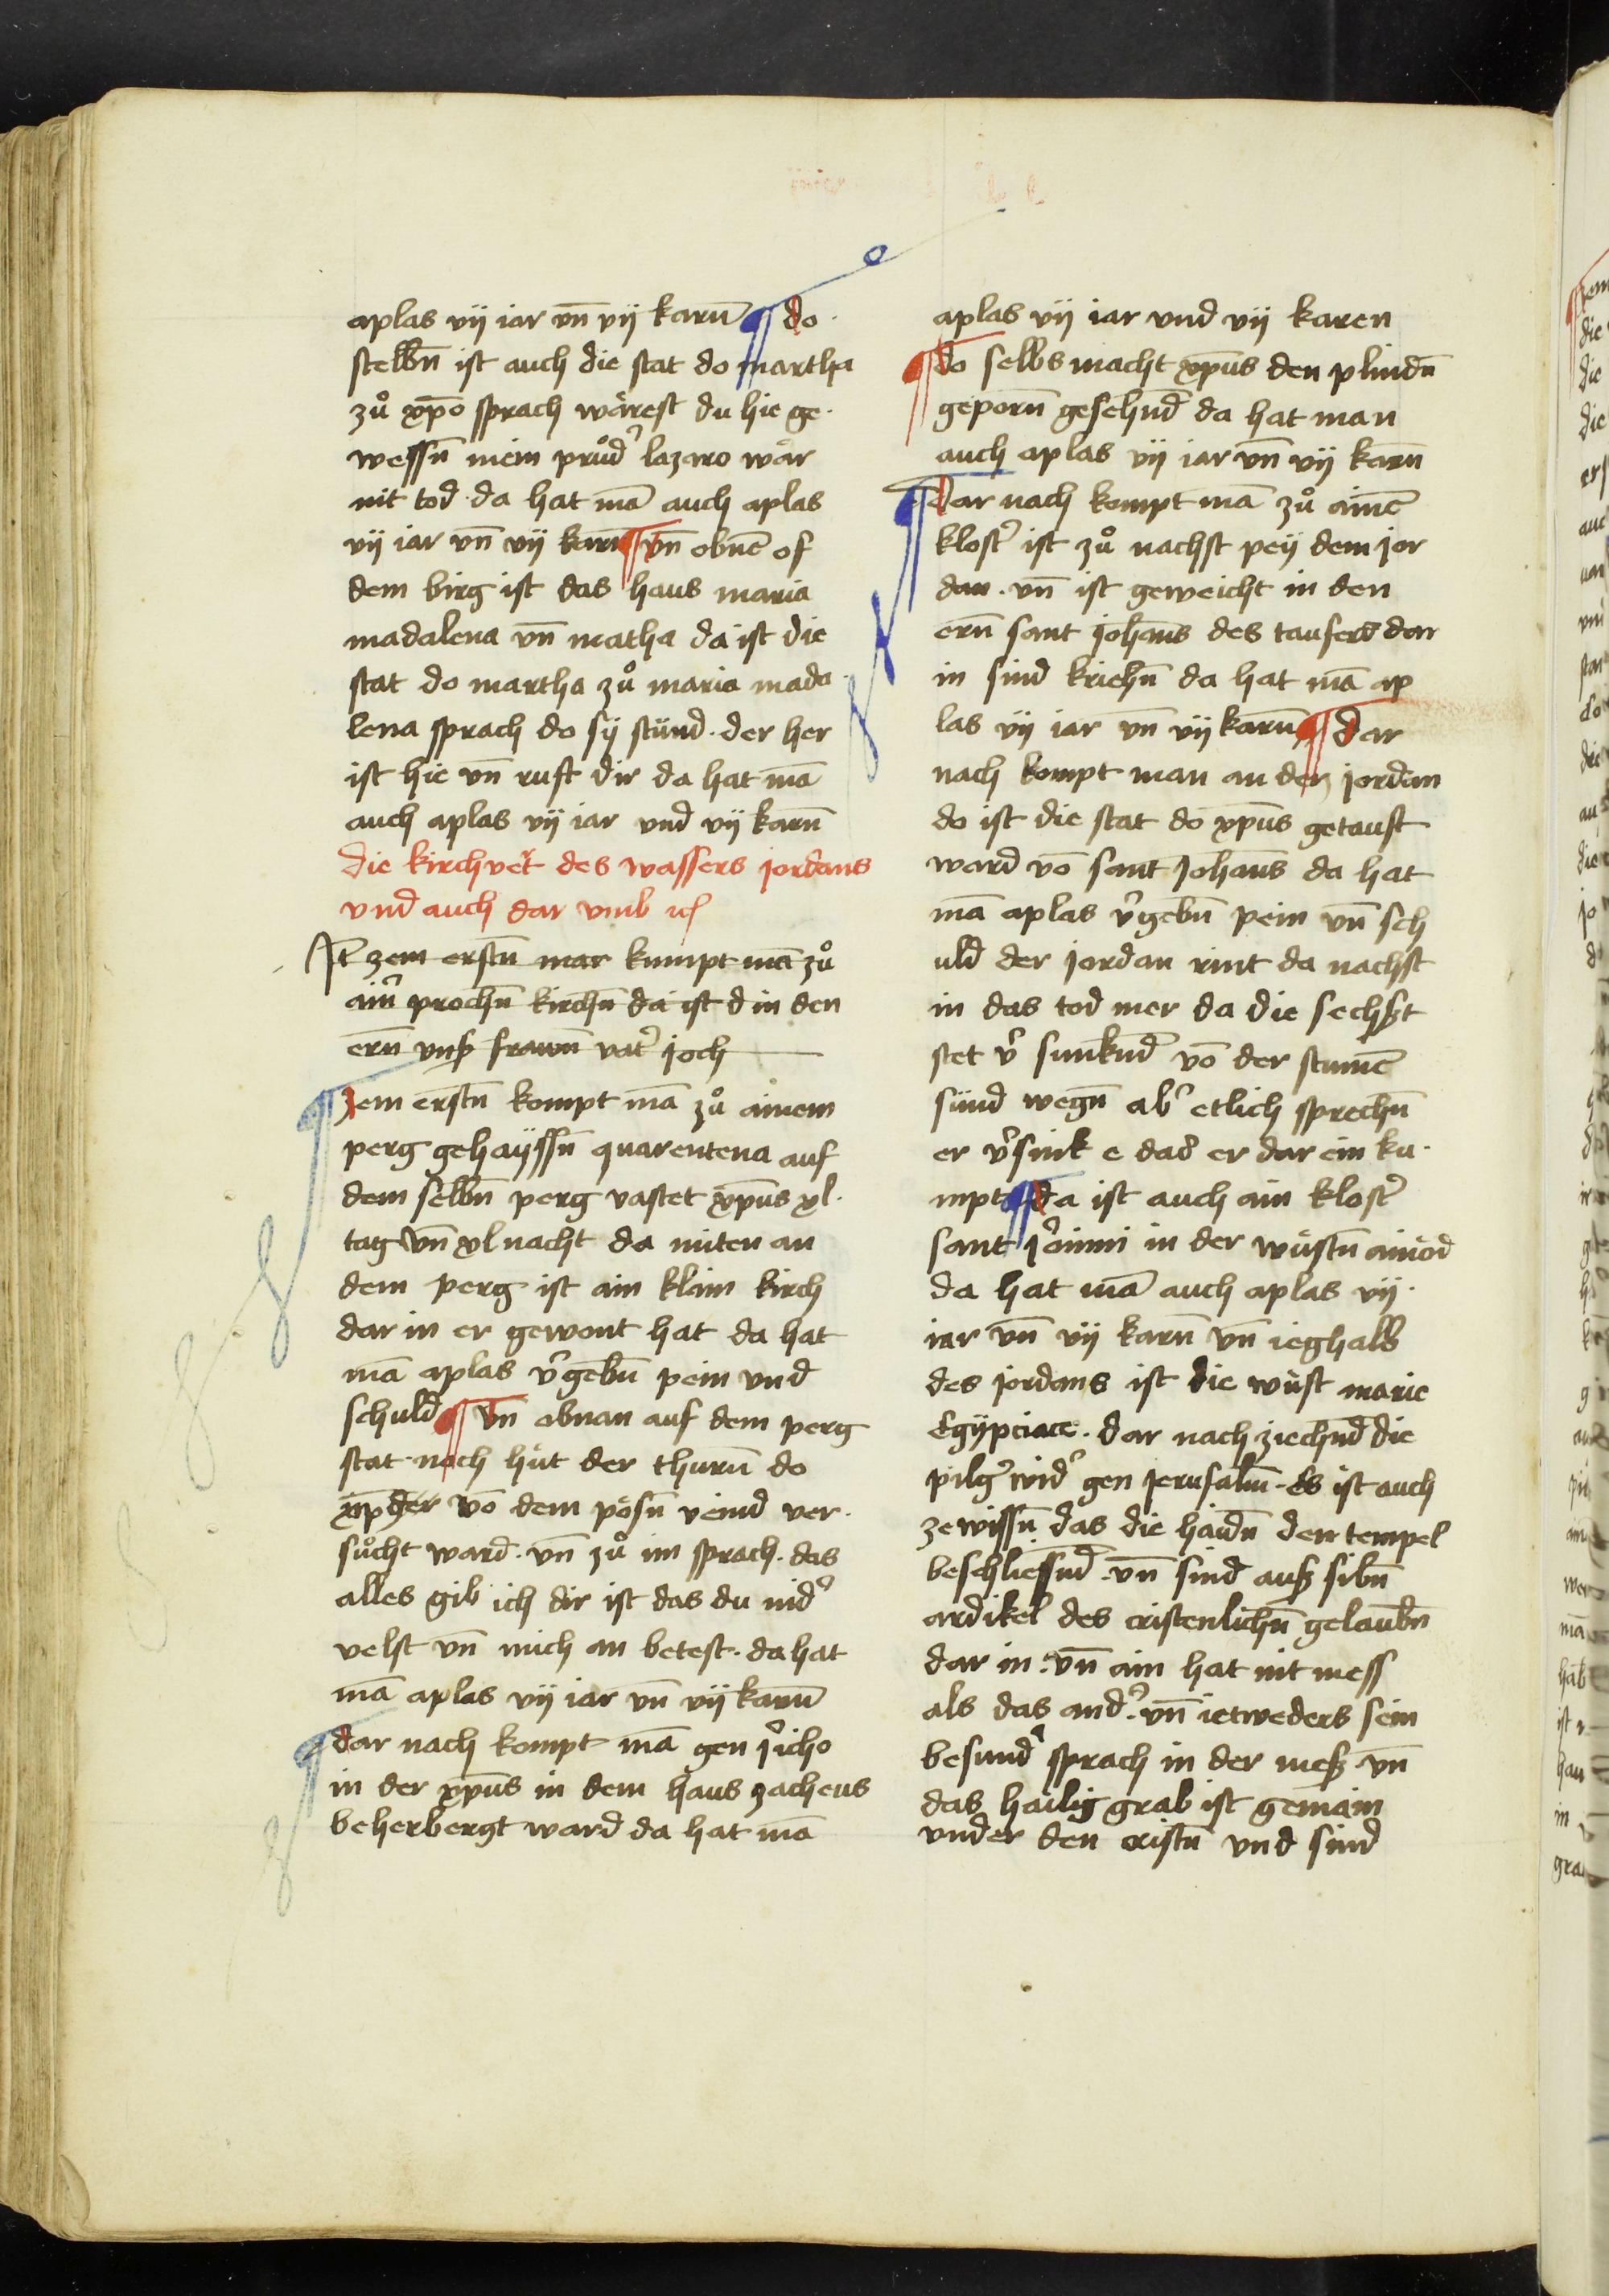 aplas vij iar vn̄ vij karn̄ ¶ do
stelbn̄ ist auch die stat do martha
zů xp̄o sprach wårest du hie ge
wessn̄ mein průdˀ lazaro wår
nit tod da hat mā auch aplas
vij iar vn̄ vij karn̄ ¶ vn̄ obnē of
dem birg ist das haus maria
madalena vn̄ matha da ist die
stat do martha zů maria mada
lena sprach do sÿ stůnd · der her
ist hie vn̄ ruft dir da hat mā
auch aplas vij iar vnd vij karn̄
die kirchvert des wassers jordans
vnd auch dar vmb
Jt̄ zem erstn̄ mar kumpt mā zů
ainˀ prochn̄ kirchn̄ da ist d in den
ern̄ vnß frawn̄ vatˀ joch
¶ zem erstn̄ kompt mā zů ainem
perg gehaÿssn̄ quarentena auf
dem selbn̄ perg vastet xp̄us xl·
tag vn̄ xl nacht da miten an
dem perg ist ain klain kirch
dar in er gewont hat da hat
mā aplas vˀgebn̄ pein vnd
schuld ¶ vn̄ obnan auf dem perg
stat noch hüt der thurn̄ do
xp̄ der vō dem pösn̄ veind ver·
sůcht ward · vn̄ zů im sprach · das
alles gib ich dir ist das du nidˀ
velst vn̄ mich an betest · da hat
mā aplas vij iar vn̄ vij karn̄
¶ dar nach kompt mā gen jˀicho
in der xp̄us in dem haus zacheus
beherbergt ward da hat mā
aplas vij iar vnd vij karen
¶ do selbs macht xp̄us den plindn̄
geporn̄ gesehnd̄ da hat man
auch aplas vij iar vn̄ vij karn̄
¶ dar nach kompt mā zů ainē
klostˀ ist zů nachst peÿ dem jor
dan · vn̄ ist geweicht in den
ern̄ sant johan̄s des taufers dar
in sind kriechn̄ da hat mā ap
las vij iar vn̄ vij karn̄ ¶ dar
nach kompt man an den jordan
do ist die stat do xp̄us getauft
ward vō sant Johan̄s da hat
mā aplas vˀgebn̄ pein vn̄ sch
uld der jordan rint da nachst
in das tod mer da die sechßt
stet vˀ sunknd̄ vō der stumē
sünd wegn̄ abˀ etlich sprechn̄
er vˀsink e das er dar ein ku·
mpt ¶ da ist auch ain klostˀ
sant jˀonimi in der wüstn̄ ainöd
da hat mā auch aplas vij·
iar vn̄ vij karn̄ vn̄ ieghalb
des jordans ist die wüst marie
Egÿpciace · dar nach ziechnd̄ die
pilgˀ widˀ gen jerusalm̄ · Es ist auch
ze wissn̄ das die haidn̄ den tempel
beschliessnd̄ · vn̄ sind auß sibn̄
ardikel des cristenlichn̄ gelaubn̄
dar in · vn̄ ain hat nit mess
als das andˀ · vn̄ ietweders sein
besundˀ sprach in der meß · vn̄
das hailig grab ist gemain
vnder den cristn̄ vnd sind